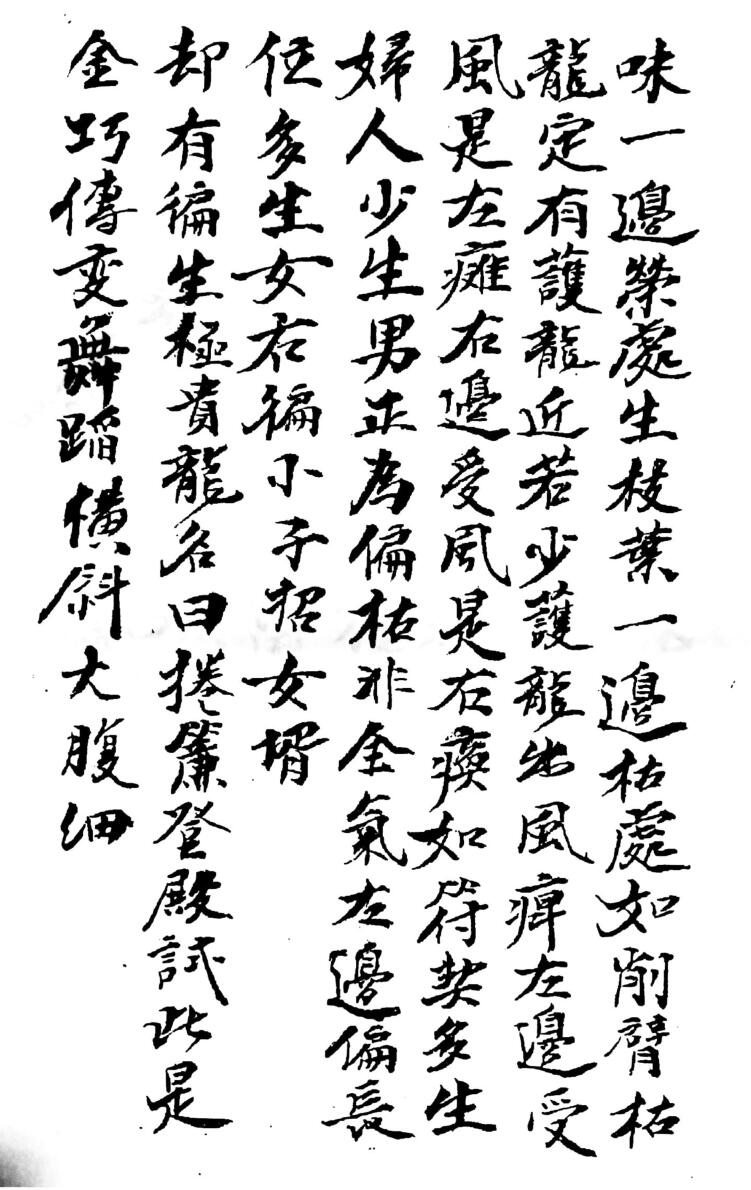 味一邊榮處生枝葉一邊枯處如削臂枯
龍定有護龍近若少護龍出風痺左邊受
風是左癱右邊受風是右瘓如符契多生
婦人少生男正為偏枯非全氣左邊偏長
位多生女右徧小子招女壻
却有徧生極貴龍名曰捲簾登殿試此是
金巧傳变舞蹈橫斜大腹细